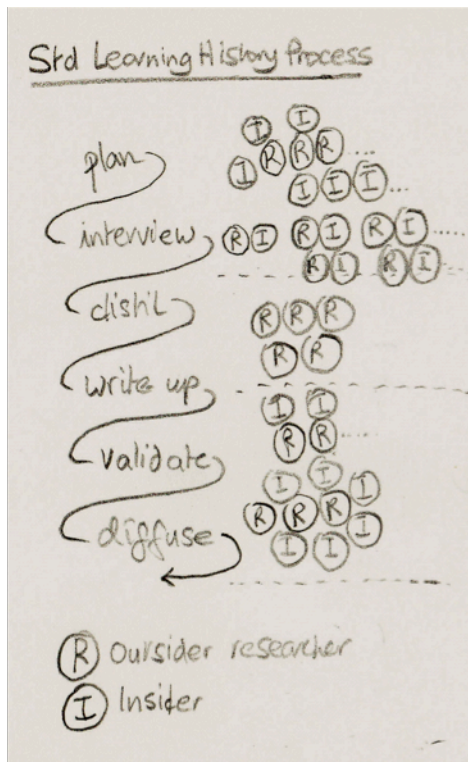 Std Learning History Process
I I
plan R R R ....
I
I I I ...
interview R I R I R I .....
R I R I
distil R R R
R R
write up
I I
validate R R .....
I I I
R R R I
diffuse I I
R Outsider researcher
I Insider